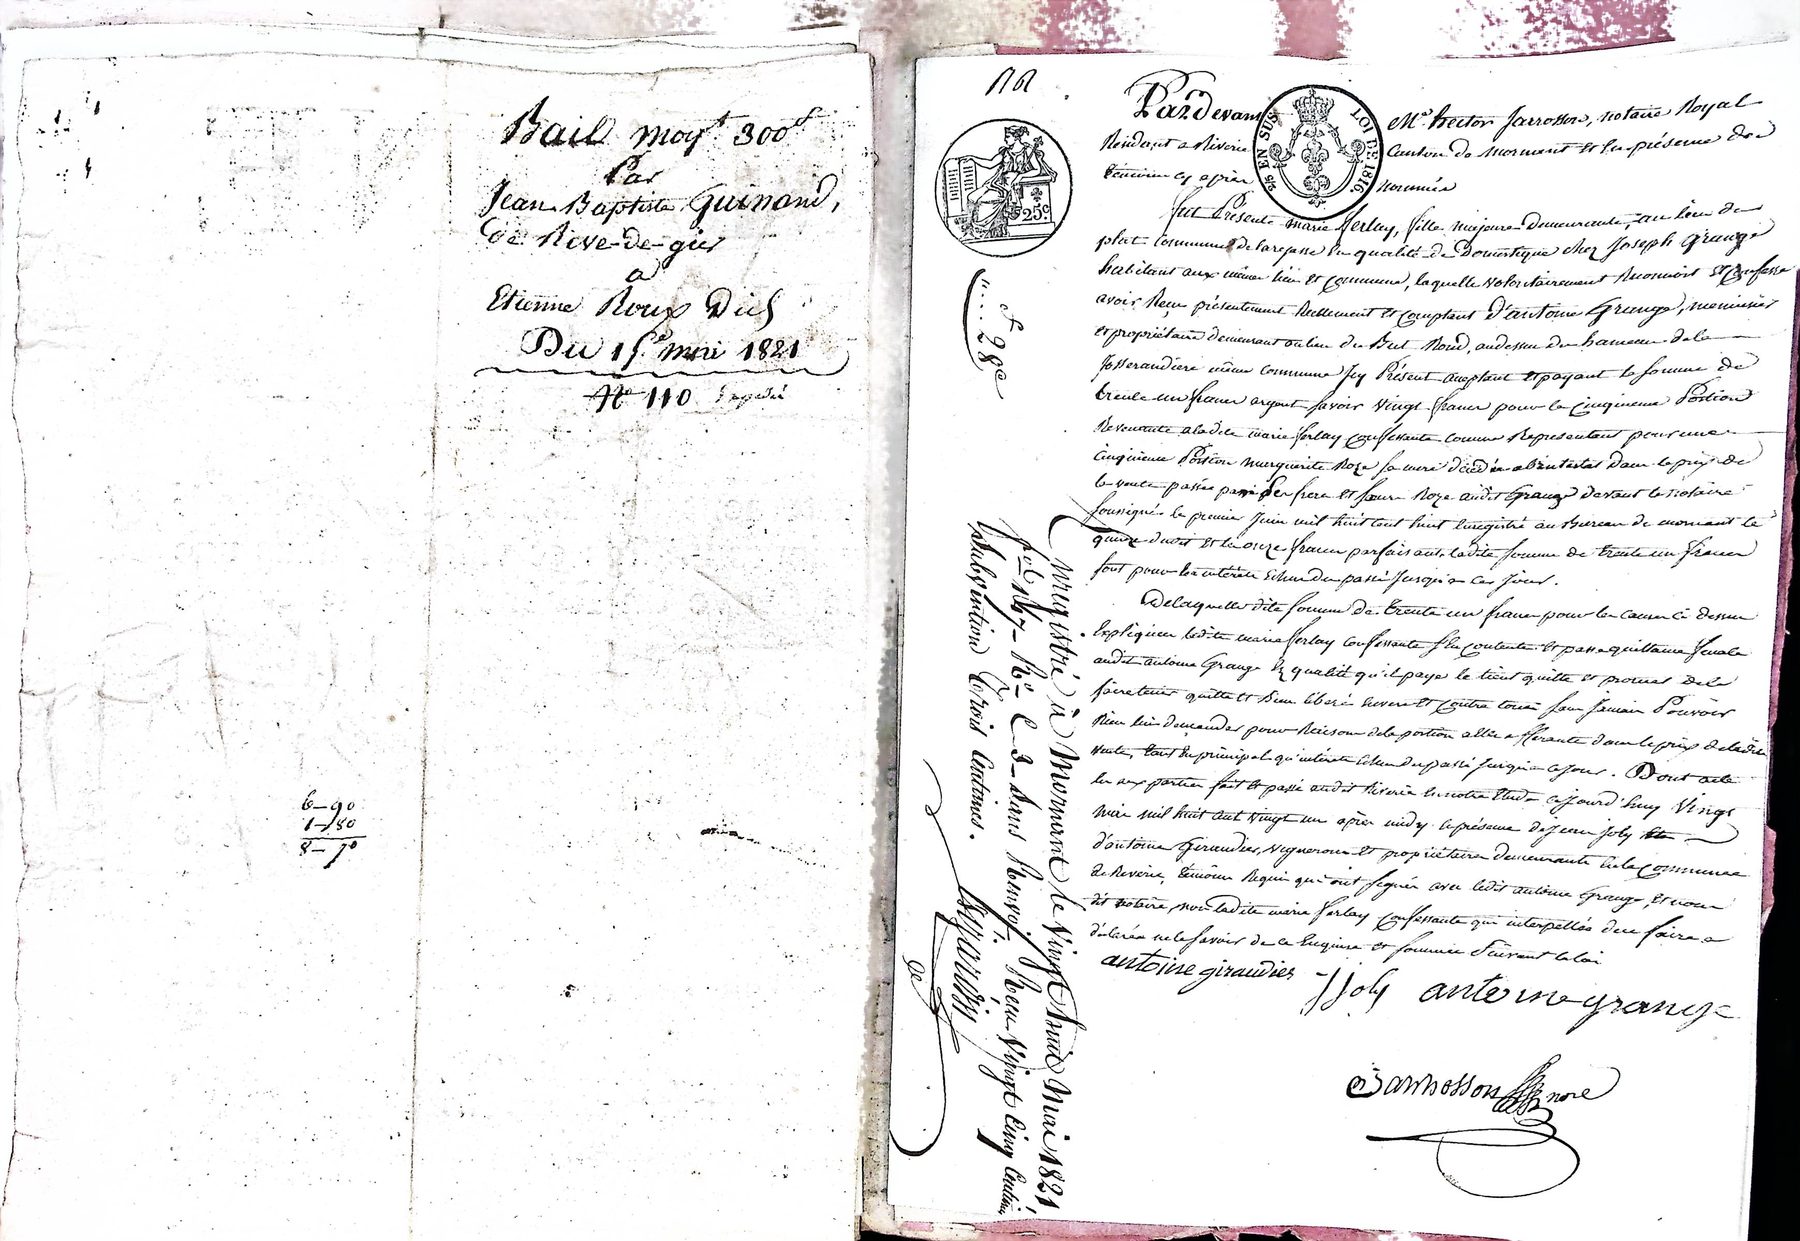 Bail moy.t 300 f
Par
Jean Baptiste Guinand,
De Rive-de-gier
a
Etienne Roux Dich
Du 15 mai 1821
N° 110 Expedié
6-90
1-80
8-70
Pardevant Me hector Jarrosson, notaire Royal
Résidant a Riverie Canton de mornant Et En présence des
témoins cy après nommés
25 EN SUS LOI DE 1816
25c
fut Présente marie ferlay, fille majeure demeurante, au lieu de
plat Commune de larajasse En qualité de Domestique chez Joseph Grange
habitant aux même lieu et Commune, laquelle volontairement Reconnait Et Confesse
avoir Reçu présentement Réellement et Comptant d'antoine Grange, menuisier
et propriétaire demeurant au lieu du But Rond, audessus du hameau de la
Josserandiere même Commune Icy Présent acceptant et payant la somme de
trente un francs argent savoir vingt francs pour la Cinquieme Portion
Revenante a ladite marie ferlay Confessante Comme Représentant pour une
Cinquieme Portion marguerite Roze sa mere décédée abintestat dans le prix de
la vente passée par les frere et sœurs Roze audit Grange devant le notaire
soussigné le premier Juin mil huit cent huit Enregistré au Bureau de mornant le
quinze dudit et les onze francs parfaisant ladite somme de trente un francs
sont pour les intérêts Echus du passé Jusqu'a ce Jour.
De laquelle dite somme de trente un francs pour les Causes Ci dessus
Expliquées ladite marie ferlay Confessante s'En Contente et passe quittance finale
audit antoine Grange En qualité qu'il paye le tient quitte et promet de le
faire tenir quitte et Bien libéré Envers et Contre tous sans Jamais Pouvoir
Rien lui demander pour Raison de la portion a Elle afferante dans le prix de ladite
vente, tant En principal qu'intérêts Echus du passé Jusqu'a ce Jour. Dont acte
lu aux parties fait et passé audit Riverie En notre Etude ce Jourd'huy vingt
mai mil huit cent vingt un après midy En présence de Jean Joly
d'antoine Giraudier, vignerons et propriétaires demeurants En la Commune
de Riverie, témoins Requis qui ont signés avec ledit antoine Grange, et nous
dit notaire, non ladite marie ferlay Confessante qui interpellée de le faire a
déclarée ne le savoir de ce Enquise et sommée suivant la loi
antoine giraudier J Joly antoine grange
Jarrosson nore
f 28c
Enregistré à Mornant le vingt huit Mai 1821
fol. 147 Rº C. 3 sans Renvoi, Reçu vingt cinq Centimes
Subvention trois Centimes.